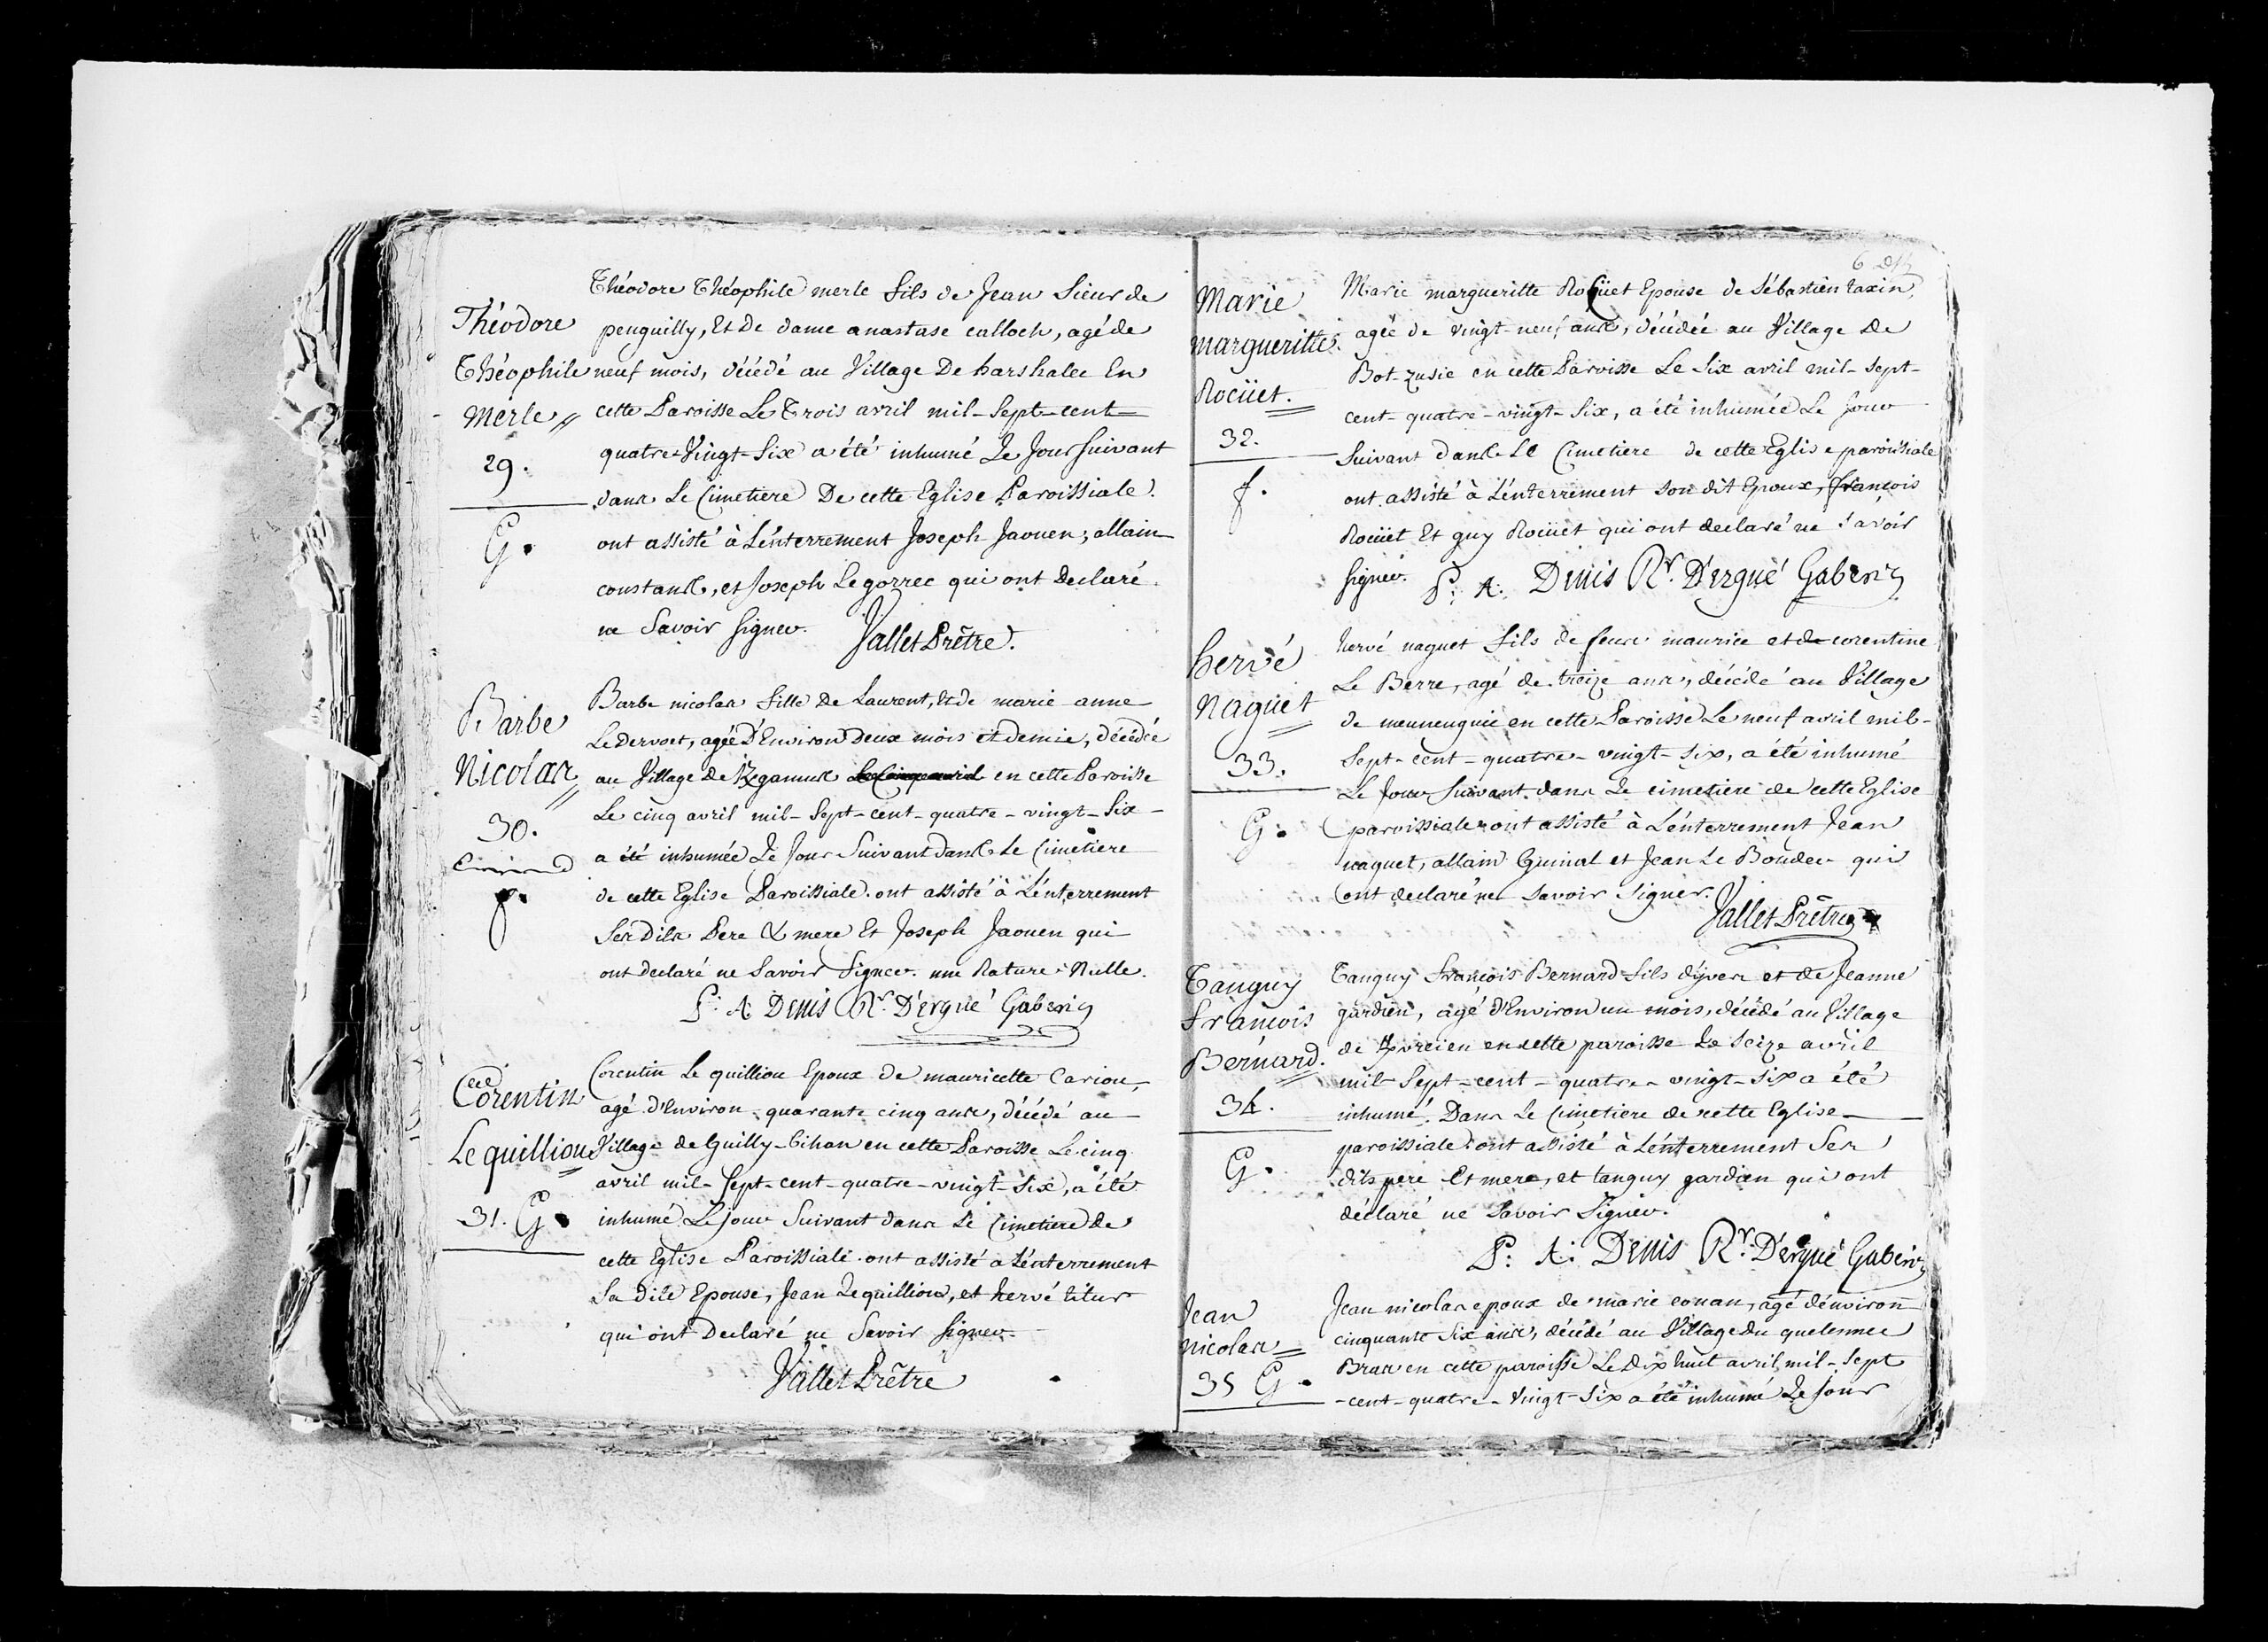 Théodore
Théophile
Merle
29.
G.
Théodore Théophile merle fils de Jean Sieur de
penguilly, Et De dame anastase calloch, agé de
neuf mois, décédé au Village De Parshalec En
cette Paroisse Le Trois avril mil-Sept-cent
quatre-Vingt-Six a été inhumé Le Jour Suivant
dans Le Cimetiere De cette Eglise Paroissiale.
ont assisté à L'enterrement Joseph Jaouen, allain
constans, et Joseph Legorrec qui ont Declaré
ne Savoir signer. Vallet Prêtre.
Barbe
Nicolas
30.
f.
Barbe nicolas fille De Laurent, Et de marie anne
Le Dervoet, agée D'Environ Deux mois et demie, décédée
au Village De en cette Paroisse
Le cinq avril mil-Sept-cent-quatre-vingt-Six
a été inhumée Le Jour Suivant dans Le Cimetiere
de cette Eglise Paroissiale. ont assisté à L'enterrement
Ses Dits Pere & mere Et Joseph Jaouen qui
ont declaré ne Savoir Signer. une Rature Nulle.
P: A: Denis Rr. D'ergué Gaberic
Corentin
Le quilliou
31. G.
Corentin Le quilliou Epoux de mauricette Cariou,
agé d'Environ quarante cinq ans, décédé au
Village de Guilly-bihan en cette Paroisse Le cinq
avril mil-Sept-cent-quatre-vingt-Six, a été
inhumé Le jour Suivant dans Le Cimetiere de
cette Eglise Paroissiale. ont assisté a L'enterrement
Sa dite Epouse, Jean Le quilliou, et hervé
qui ont Declaré ne Savoir signer.
Vallet Prêtre
Marie
margueritte
Rocüet.
32.
f.
Marie margueritte Rocüet Epouse de Sébastien taxin,
agée de vingt-neuf ans, décédée au Village De
Bot-zusic en cette Paroisse Le Six avril mil-Sept-
cent-quatre-vingt-Six, a été inhumée Le Jour
Suivant dans Le Cimetiere de cette Eglise paroissiale
ont assisté à L'enterrement son dit Epoux, François
Rocüet Et guy Rocüet qui ont declaré ne savoir
signer. P: A: Denis Rr. D'ergué Gaberic
hervé
Naguet
33.
G.
hervé naguet fils de feux maurice et de corentine
Le Berre, agé de treize ans, décédé au Village
de en cette Paroisse Le neuf avril mil-
Sept-cent-quatre-vingt-six, a été inhumé
Le Jour Suivant dans Le cimetiere de cette Eglise
paroissiale ont assisté à L'enterrement Jean
naguet, allain Guinal et Jean Le Boudec qui
ont declaré ne savoir signer.
Vallet Prêtre
Tanguy
François
Bernard.
34.
G.
Tanguy François Bernard fils d'yves et de Jeanne
gardien, agé d'Environ un mois, décédé au Village
de en cette paroisse Le Seize avril
mil-Sept-cent-quatre-vingt-Six a été
inhumé. Dans Le Cimetiere de cette Eglise
paroissiale ont assisté à L'enterrement Ses
dits pere Et mere, et tanguy gardien qui ont
déclaré ne Savoir Signer.
P: A: Denis Rr. D'ergué Gaberic
Jean
Nicolas
35 G.
Jean nicolas epoux de marie conan, agé d'environ
cinquante Six ans, décédé au Village du quelennec
Bras en cette paroisse Le Dix huit avril mil-Sept
-cent-quatre-Vingt-Six a été inhumé Le Jour